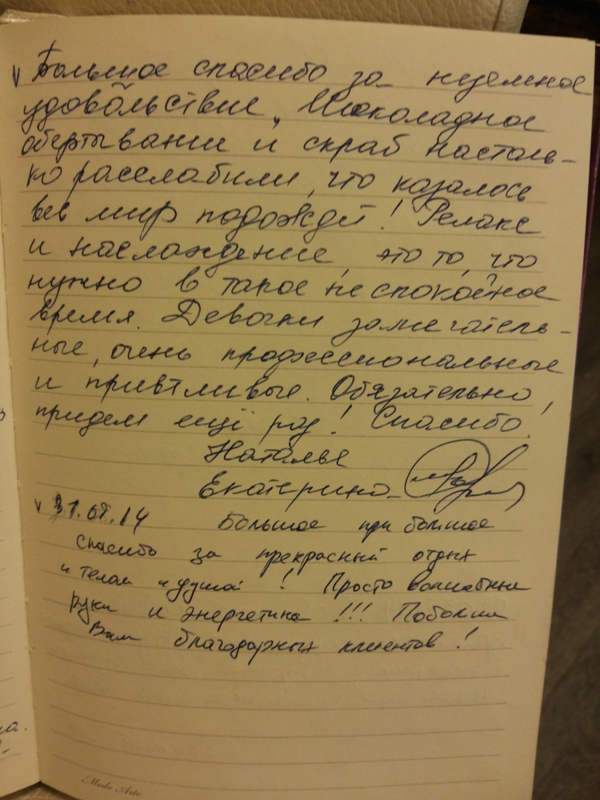 Большое спасибо за неземное
удовольствие. Шоколадное
обертывание и скраб настоль-
ко расслабили, что казалось
весь мир подождет! Релакс
и наслаждение, это то, что
нужно в такое неспокойное
время. Девочки замечатель-
ные, очень профессиональные
и приветливые. Обязательно
придем ещё раз! Спасибо!
Наталья
Екатерина
31.08.14 Большое при большое
спасибо за прекрасный отдых
и телом и душой! Просто волшебные
руки и энергетика!!! Побольше
Вам благодарных клиентов!
Modo Arte